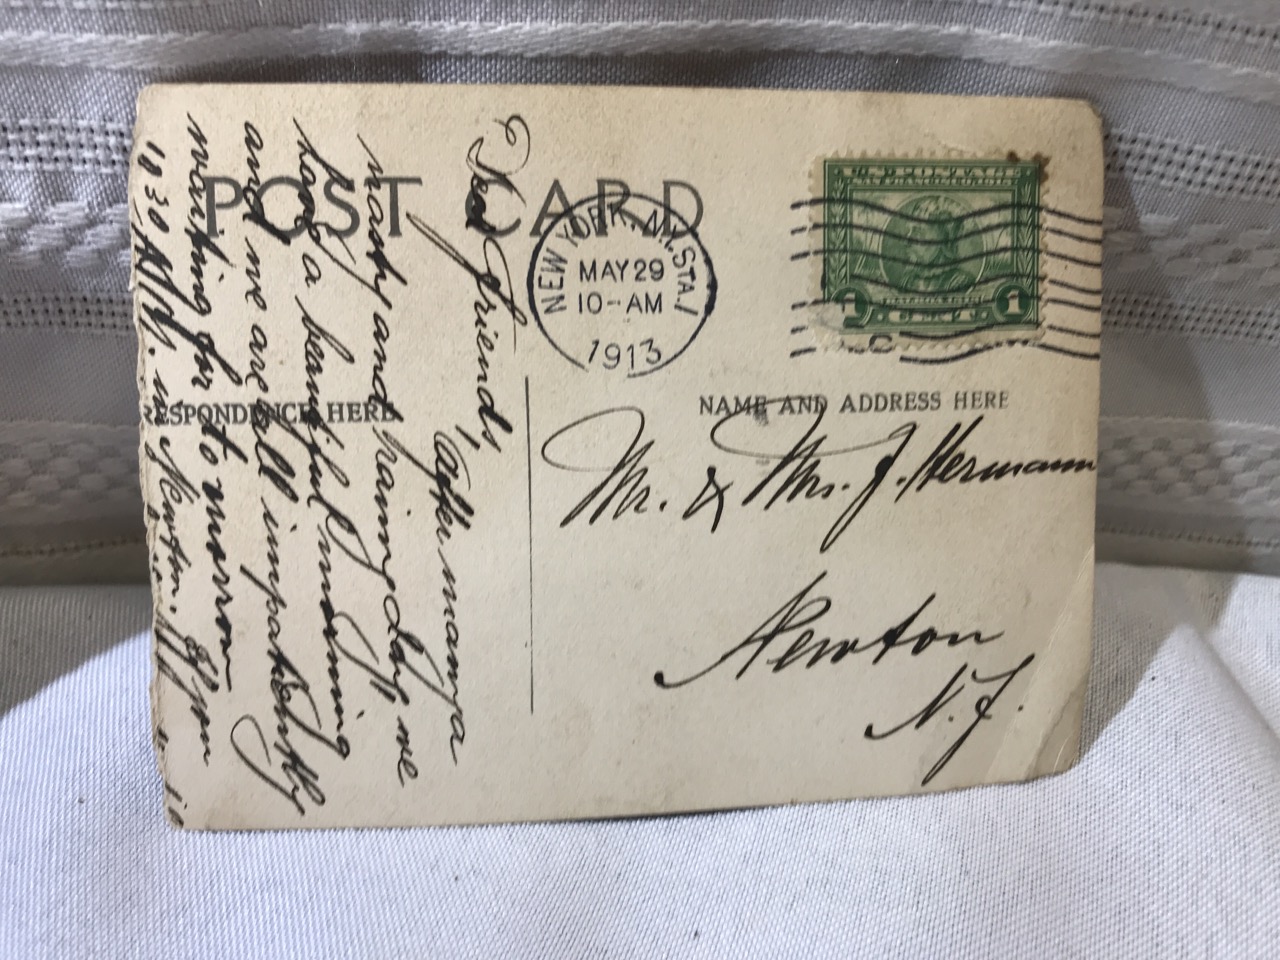 POST CARD
NEW YORK, N.Y. STA. 1
MAY 29
10-AM
1913
1 CENT 1
RESPONDENCE HERE
NAME AND ADDRESS HERE
Mr. & Mrs. J. Hermann
Newton
N.J.
Dear Friends,
After many a
nasty and rainy day we
have a beautiful morning
and we are all impatiently
waiting for to morrow
10 30 A.M. in Newton. If you